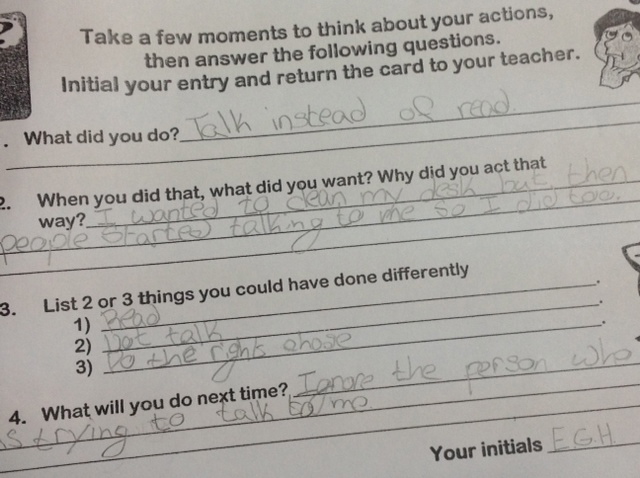 ?
Take a few moments to think about your actions,
then answer the following questions.
Initial your entry and return the card to your teacher.
. What did you do? Talk instead of read.
2. When you did that, what did you want? Why did you act that
way? I wanted to clean my desk but then
people started talking to me so I did too.
3. List 2 or 3 things you could have done differently
1) Read
2) Not talk
3) Do the right chose
4. What will you do next time? Ignore the person who
is trying to talk to me.
Your initials E.G.H.